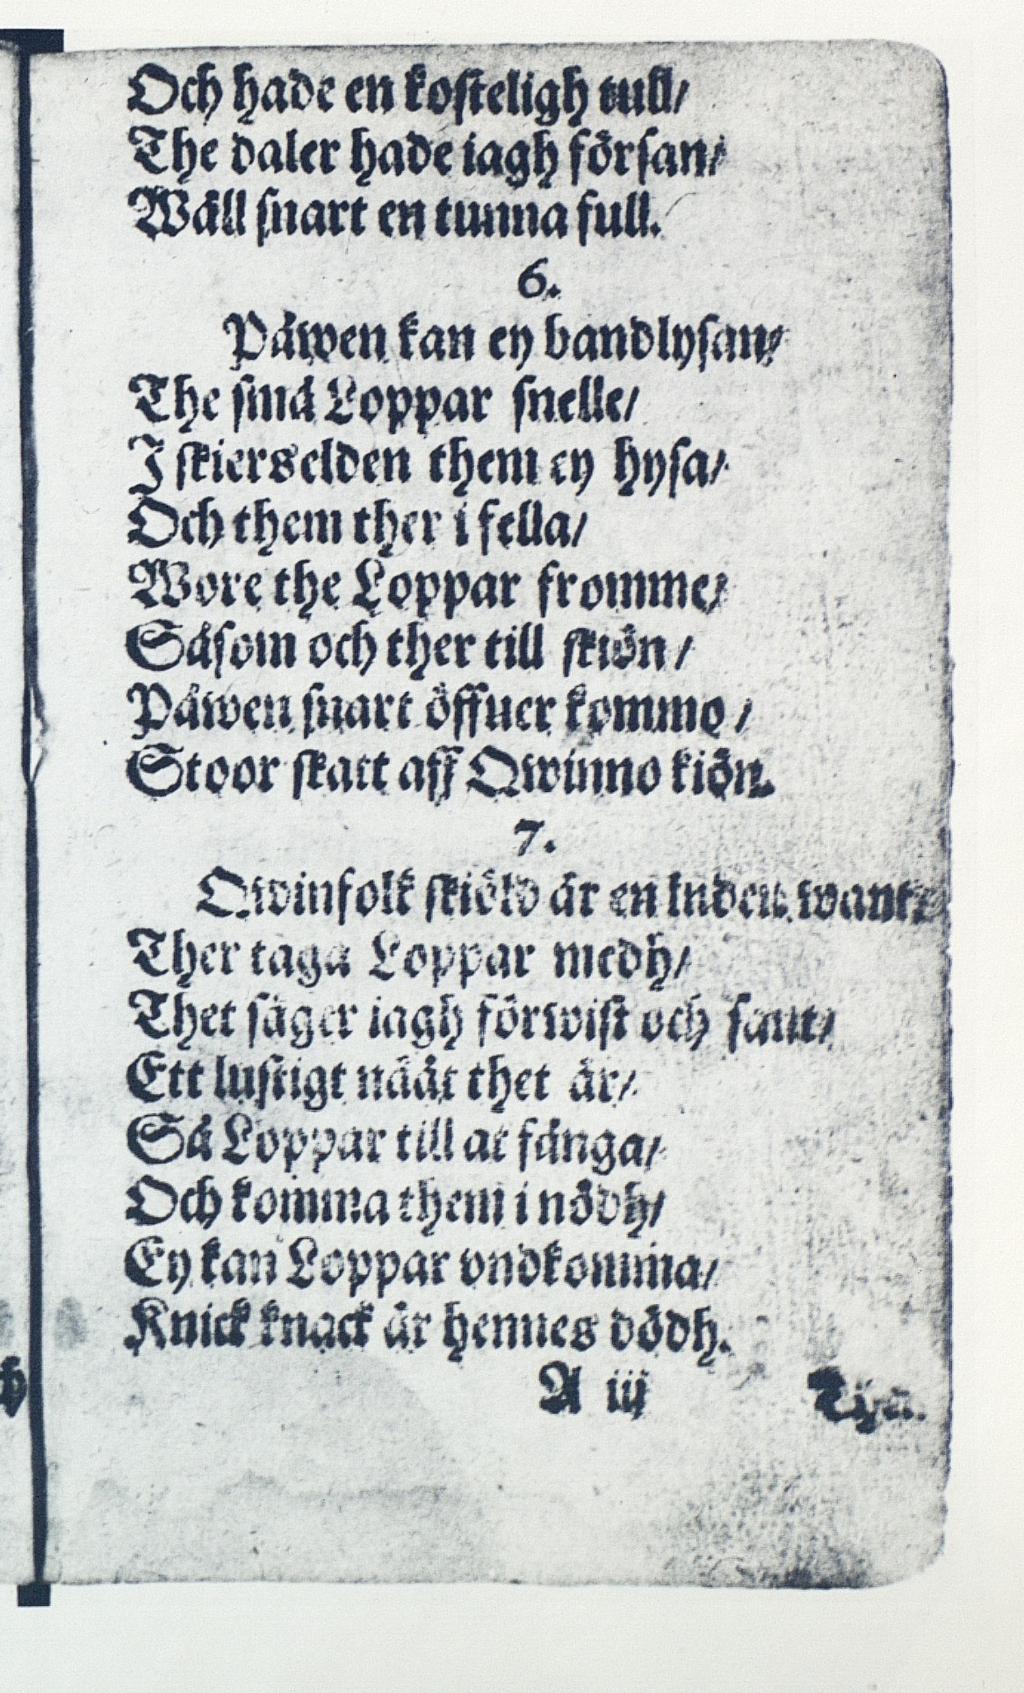 Och hade en kosteligh tull/
The daler hade iagh försan/
Wäll snart en tunna full.
6.
Påwen kan ey bandlysan/
The små Loppar snelle/
I skierselden them ey hysa/
Och them ther i fella/
Wore the Loppar fromme/
Såsom och ther till skiön /
Påwen snart öffuer komme /
Stoor skatt aff Qwinno kiön.
7.
Qwinfolk skiöld är en luden want/
Ther taga Loppar medh/
Thet säger iagh förwist och sant/
Ett lustigt näät thet är/
Så Loppar till at fånga/
Och komma them i nödh/
Ey kan Loppar vndkomma/
Knick knack är hennes dödh.
A iij